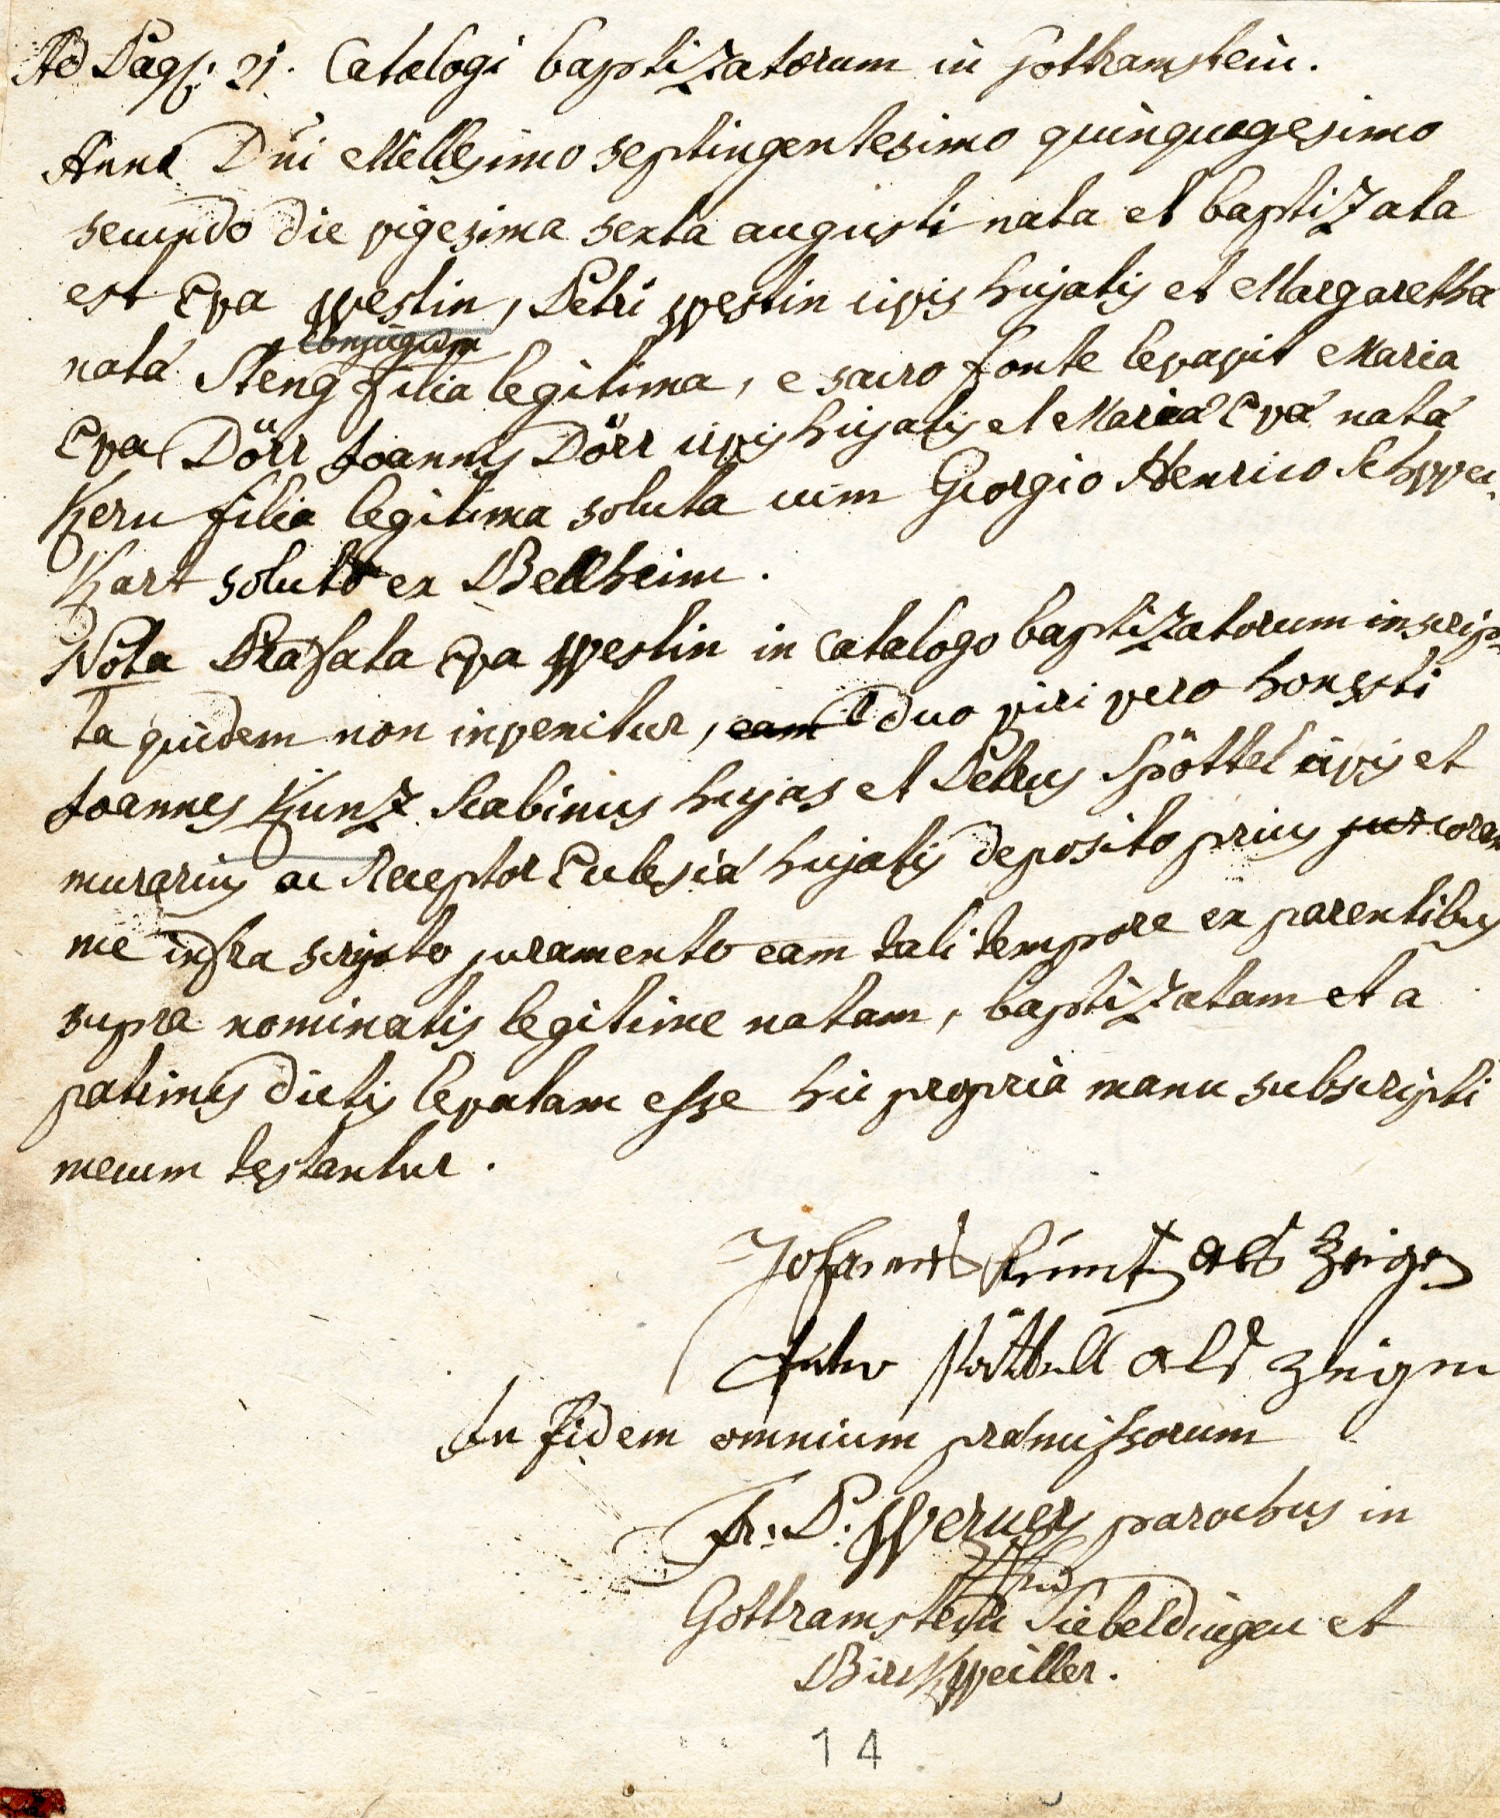 Ad Pag: 21. Catalogi baptizatorum in Gothramstein.
Anno Dni Millesimo septingentesimo quinquagesimo
secundo die vigesima sexta augusti nata et baptizata
est Eva Westin, Petri Westin civis hujatis et Margaretha
conjugum
nata Steng filia legitima, e sacro fonte levavit Maria
Eva Dörr Joannis Dörr civis hujatis et Maria Eva nata
Kern filia legitima soluta cum Georgio Henrico Schwei-
kart soluto ex Bellheim.
Nota Præfata Eva Westin in catalogo baptizatorum inscrip-
ta quidem non invenitur, eam duo viri vero honesti
Joannes Kunz Scabinus hujas et Petrus Spöttel civis et
murarius ac Receptor Ecclesiæ hujatis deposito prius jur coram
me infra scripto juramento eam tali tempore ex parentibus
supra nominatis legitime natam, baptizatam et a
patrinis dictis levatam esse hic propria manu subscripti
mecum testantur.
Johannes Kuntz als Zeige
Spöttell als zeigen
In fidem omnium præmissorum
Fr: P: Werner parochus in
Gottramstein Siebeldingen et
Birckweiller.
14